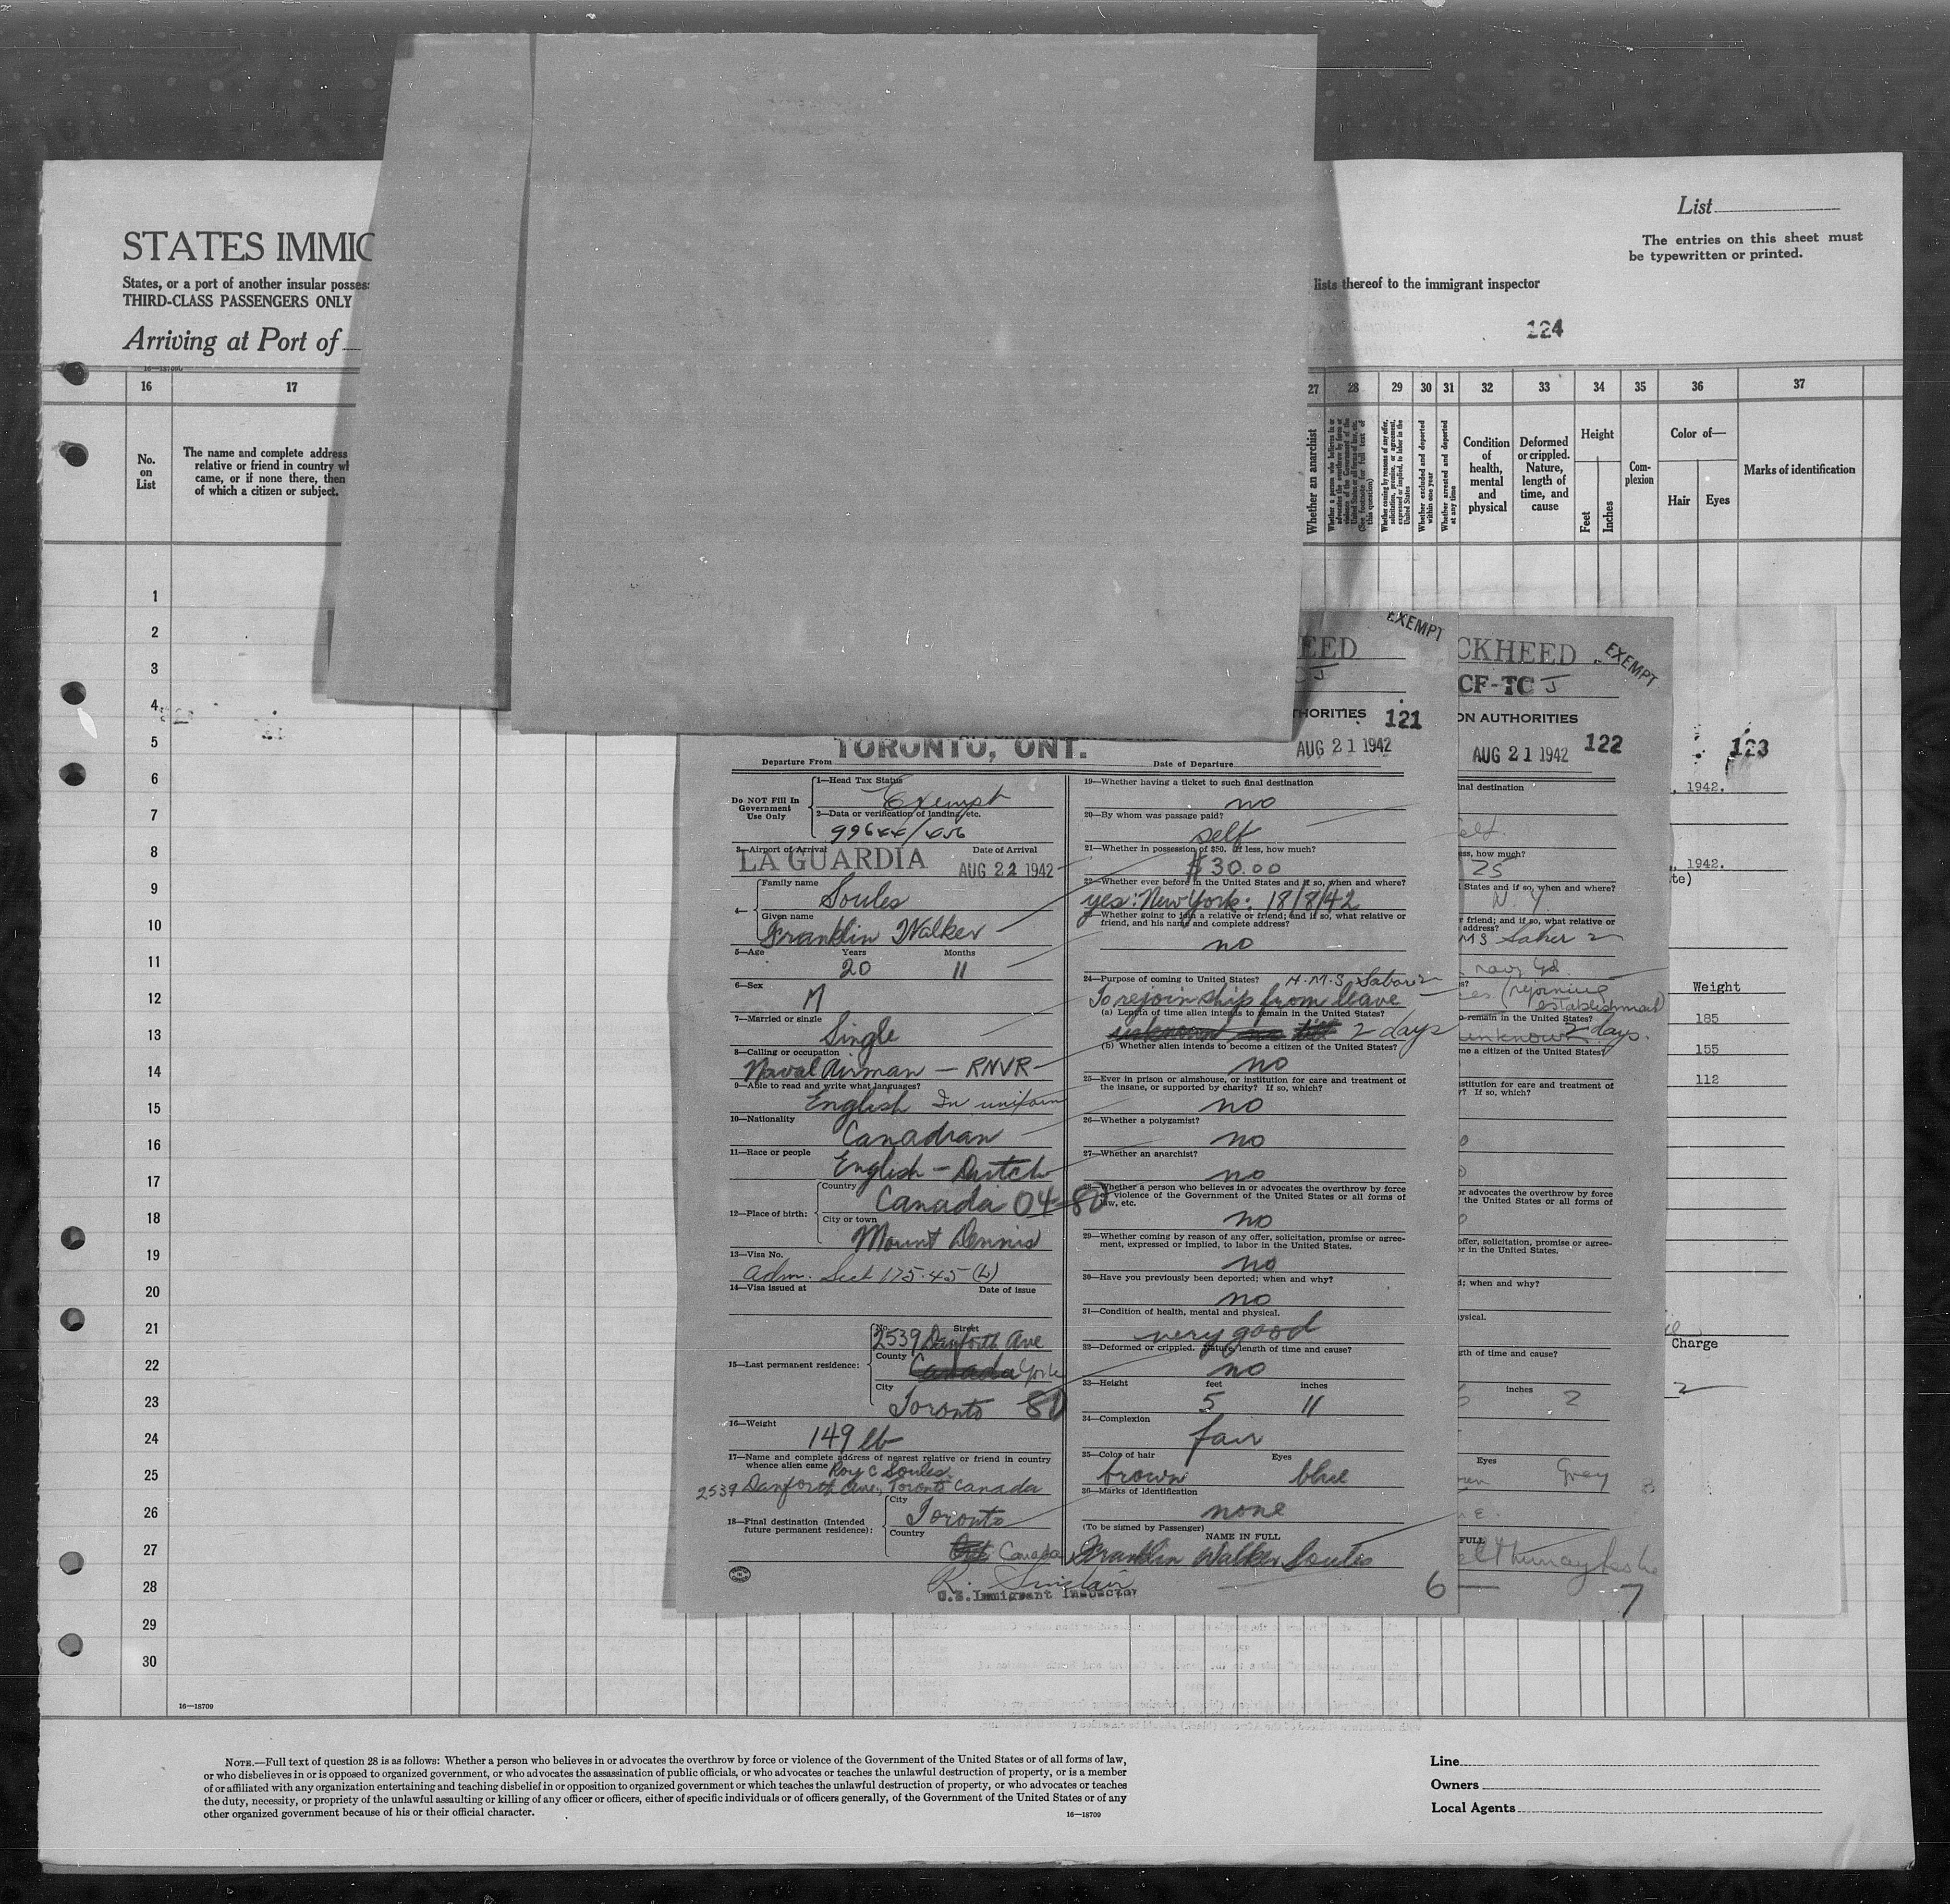 List
The entries on this sheet must
be typewritten or printed.
STATES IMMIG
States, or a port of another insular posses
THIRD-CLASS PASSENGERS ONLY
lists thereof to the immigrant inspector
Arriving at Port of
124
16—18709
16
17
27
28
29
30
31
32
33
34
35
36
37
No.
on
List
The name and complete address
relative or friend in country wh
came, or if none there, then
of which a citizen or subject.
Whether an anarchist
Whether a person who believes in or
advocates the overthrow by force or
violence of the Government of the
United States or all forms of law, etc.
(See footnote for full text of
this question)
Whether coming by reasons of any offer,
solicitation, promise, or agreement,
expressed or implied, to labor in the
United States
Whether excluded and deported
within one year
Whether arrested and deported
at any time
Condition
of
health,
mental
and
physical
Deformed
or crippled.
Nature,
length of
time, and
cause
Height
Feet
Inches
Com-
plexion
Color of—
Hair
Eyes
Marks of identification
1
2
3
4
5
6
7
8
9
10
11
12
13
14
15
16
17
18
19
20
21
22
23
24
25
26
27
28
29
30
16—18709
EXEMPT
EED
J
THORITIES 121
AUG 21 1942
TORONTO, ONT.
Departure From
Date of Departure
Do NOT Fill In
Government
Use Only
1—Head Tax Status
Exempt
2—Data or verification of landing, etc.
3—Airport of Arrival
Date of Arrival
LA GUARDIA AUG 22 1942
4—
Family name
Soules
Given name
Franklin Walker
5—Age
Years
Months
20 11
6—Sex
M
7—Married or single
Single
8—Calling or occupation
Naval Airman — RNVR
9—Able to read and write what languages?
English In uniform
10—Nationality
Canadian
11—Race or people
English — Dutch
12—Place of birth:
Country
Canada 04-80
City or town
Mount Dennis
13—Visa No.
14—Visa issued at
Date of issue
15—Last permanent residence:
No. Street
2539 Danforth Ave
County
Canada York
City
Toronto 80
16—Weight
149 lb
17—Name and complete address of nearest relative or friend in country
whence alien came Roy C Soules
2539 Danforth Ave, Toronto Canada
18—Final destination (Intended
future permanent residence):
City
Toronto
Country
Canada
R. Sinclair
U.S. Immigrant Inspector
19—Whether having a ticket to such final destination
no
20—By whom was passage paid?
self
21—Whether in possession of $50. If less, how much?
$30.00
22—Whether ever before in the United States and if so, when and where?
yes: New York: 18/8/42
23—Whether going to join a relative or friend; and if so, what relative or
friend, and his name and complete address?
no
24—Purpose of coming to United States? H.M.S.
To rejoin ship from leave
(a) Length of time alien intends to remain in the United States?
2 days
(b) Whether alien intends to become a citizen of the United States?
no
25—Ever in prison or almshouse, or institution for care and treatment of
the insane, or supported by charity? If so, which?
no
26—Whether a polygamist?
no
27—Whether an anarchist?
no
28—Whether a person who believes in or advocates the overthrow by force
or violence of the Government of the United States or all forms of
law, etc.
no
29—Whether coming by reason of any offer, solicitation, promise or agree-
ment, expressed or implied, to labor in the United States.
no
30—Have you previously been deported; when and why?
no
31—Condition of health, mental and physical.
very good
32—Deformed or crippled. Nature, length of time and cause?
no
33—Height
feet
inches
5 11
34—Complexion
fair
35—Color of hair
Eyes
brown blue
36—Marks of identification
none
(To be signed by Passenger)
NAME IN FULL
Franklin Walker Soules
6
CKHEED
EXEMPT
CF-TC J
ON AUTHORITIES
AUG 21 1942
122
inal destination
self.
ess, how much?
25
States and if so, when and where?
N. Y.
r friend; and if so, what relative or
address?
(rejoining
establishment)
o remain in the United States?
unknown 2 days.
me a citizen of the United States?
stitution for care and treatment of
y? If so, which?
or advocates the overthrow by force
the United States or all forms of
offer, solicitation, promise or agree-
or in the United States.
d; when and why?
ysical.
gth of time and cause?
inches
2
Eyes
Grey
FULL
7
123
, 1942.
, 1942.
te)
Weight
185
155
112
Charge
2
NOTE.—Full text of question 28 is as follows: Whether a person who believes in or advocates the overthrow by force or violence of the Government of the United States or of all forms of law,
or who disbelieves in or is opposed to organized government, or who advocates the assassination of public officials, or who advocates or teaches the unlawful destruction of property, or is a member
of or affiliated with any organization entertaining and teaching disbelief in or opposition to organized government or which teaches the unlawful destruction of property, or who advocates or teaches
the duty, necessity, or propriety of the unlawful assaulting or killing of any officer or officers, either of specific individuals or of officers generally, of the Government of the United States or of any
other organized government because of his or their official character.
16—18709
Line
Owners
Local Agents